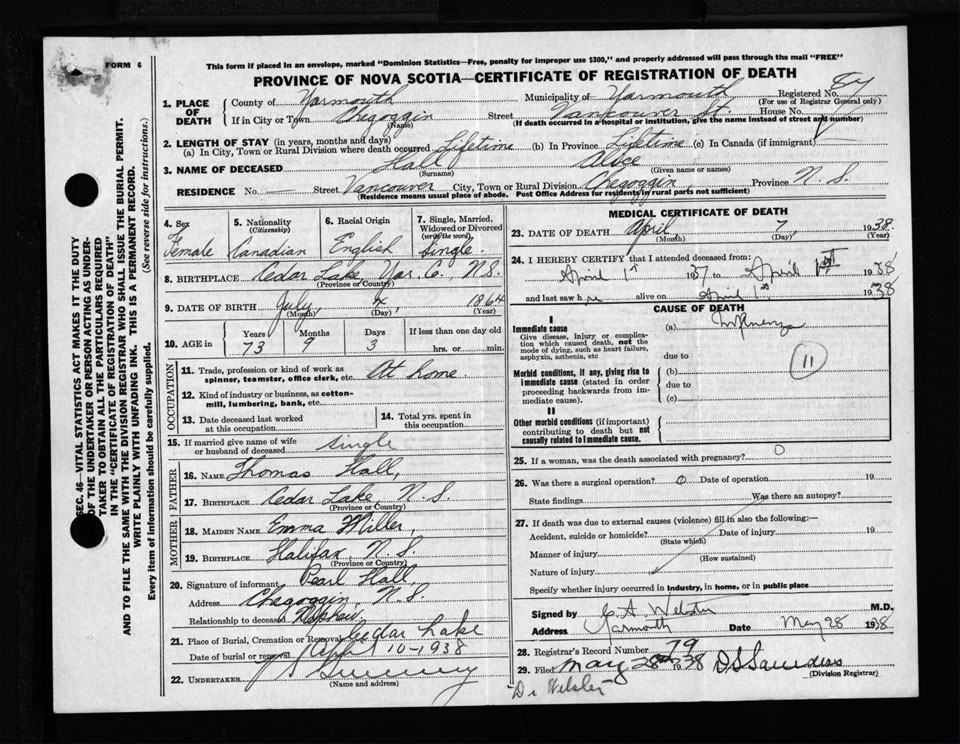 FORM 6
This form if placed in an envelope, marked "Dominion Statistics—Free, penalty for improper use $300," and properly addressed will pass through the mail "FREE"
PROVINCE OF NOVA SCOTIA—CERTIFICATE OF REGISTRATION OF DEATH
1. PLACE OF DEATH
County of Yarmouth Municipality of Yarmouth Registered No.
(For use of Registrar General only)
If in City or Town Chegoggin Street Vancouver St. House No.
(Name) (If death occurred in a hospital or institution, give the name instead of street and number)
2. LENGTH OF STAY (in years, months and days)
(a) In City, Town or Rural Division where death occurred Lifetime (b) In Province Lifetime (c) In Canada (if immigrant)
3. NAME OF DECEASED Hall Alice
(Surname) (Given name or names)
RESIDENCE No. — Street Vancouver City, Town or Rural Division Chegoggin, Province N. S.
(Residence means usual place of abode. Post Office Address for residents in rural parts not sufficient)
4. Sex Female
5. Nationality (Citizenship) Canadian
6. Racial Origin English
7. Single, Married, Widowed or Divorced (write the word) Single.
8. BIRTHPLACE Cedar Lake Yar. Co. N.S.
(Province or Country)
9. DATE OF BIRTH July, 4, 1864
(Month) (Day) (Year)
10. AGE in Years 73 Months 9 Days 3 If less than one day old hrs. or min.
OCCUPATION
11. Trade, profession or kind of work as spinner, teamster, office clerk, etc. At home.
12. Kind of industry or business, as cotton-mill, lumbering, bank, etc.
13. Date deceased last worked at this occupation
14. Total yrs. spent in this occupation
15. If married give name of wife or husband of deceased Single
FATHER
16. NAME Thomas Hall,
17. BIRTHPLACE Cedar Lake, N. S.
(Province or Country)
MOTHER
18. MAIDEN NAME Emma Miller,
19. BIRTHPLACE Halifax, N. S.
(Province or Country)
20. Signature of informant Pearl Hall,
Address Chegoggin N. S.
Relationship to deceased
21. Place of Burial, Cremation or Removal Cedar Lake
Date of burial or removal April 10-1938
22. UNDERTAKER
(Name and address)
MEDICAL CERTIFICATE OF DEATH
23. DATE OF DEATH April, 7, 1938.
(Month) (Day) (Year)
24. I HEREBY CERTIFY that I attended deceased from:
April 1st 1937 to April 1st 1938
and last saw her alive on April 1st 1938
CAUSE OF DEATH
I
Immediate cause
Give disease, injury or complication which caused death, not the mode of dying, such as heart failure, asphyxia, asthenia, etc
(a) Influenza
due to
11
Morbid conditions, if any, giving rise to immediate cause (stated in order proceeding backwards from immediate cause).
(b)
due to
(c)
II
Other morbid conditions (if important) contributing to death but not causally related to immediate cause.
25. If a woman, was the death associated with pregnancy? 0
26. Was there a surgical operation? 0 Date of operation 19
State findings Was there an autopsy?
27. If death was due to external causes (violence) fill in also the following:—
Accident, suicide or homicide? Date of injury 19
(State which)
Manner of injury
(How sustained)
Nature of injury
Specify whether injury occurred in industry, in home, or in public place
Signed by C A Webster M.D.
Address Yarmouth Date May 28 1938
28. Registrar's Record Number 79
29. Filed May 28th 1938 D.S. Saunders
(Division Registrar)
"Dr Webster"
SEC. 46—VITAL STATISTICS ACT MAKES IT THE DUTY
OF THE UNDERTAKER OR PERSON ACTING AS UNDER-
TAKER TO OBTAIN ALL THE PARTICULARS REQUIRED
IN THE "CERTIFICATE OF REGISTRATION OF DEATH"
AND TO FILE THE SAME WITH THE DIVISION REGISTRAR WHO SHALL ISSUE THE BURIAL PERMIT.
WRITE PLAINLY WITH UNFADING INK. THIS IS A PERMANENT RECORD.
Every item of information should be carefully supplied. (See reverse side for instructions.)